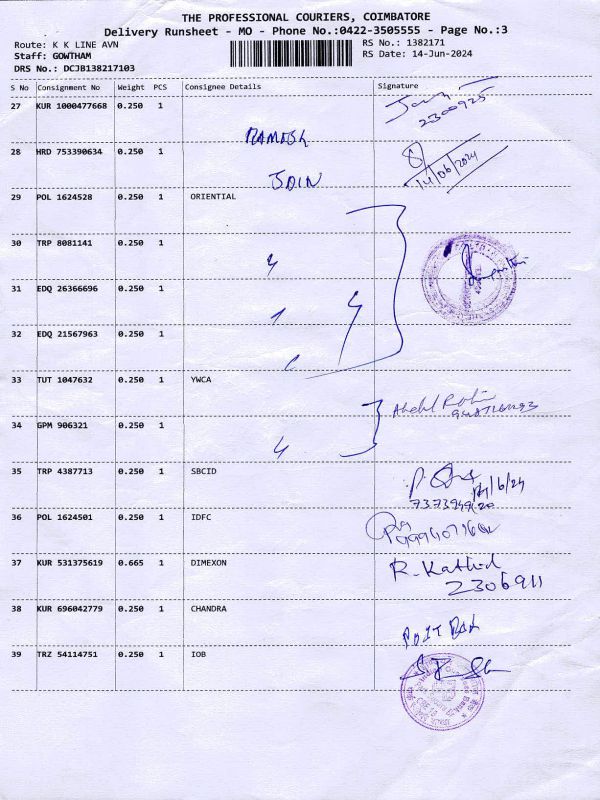 THE PROFESSIONAL COURIERS, COIMBATORE
Delivery Runsheet - MO - Phone No.:0422-3505555 - Page No.:3
Route: K K LINE AVN
RS No.: 1382171
Staff: GOWTHAM
RS Date: 14-Jun-2024
DRS No.: DCJB138217103
S No Consignment No Weight PCS Consignee Details Signature
27 KUR 1000477668 0.250 1
2300925
RAMESH
28 HRD 753390634 0.250 1
14/06/2024
JAIN
29 POL 1624528 0.250 1 ORIENTIAL
30 TRP 8081141 0.250 1
31 EDQ 26366696 0.250 1
32 EDQ 21567963 0.250 1
33 TUT 1047632 0.250 1 YWCA
34 GPM 906321 0.250 1
35 TRP 4387713 0.250 1 SBCID
36 POL 1624501 0.250 1 IDFC
37 KUR 531375619 0.665 1 DIMEXON
R. Kathid
2306911
38 KUR 696042779 0.250 1 CHANDRA
39 TRZ 54114751 0.250 1 IOB